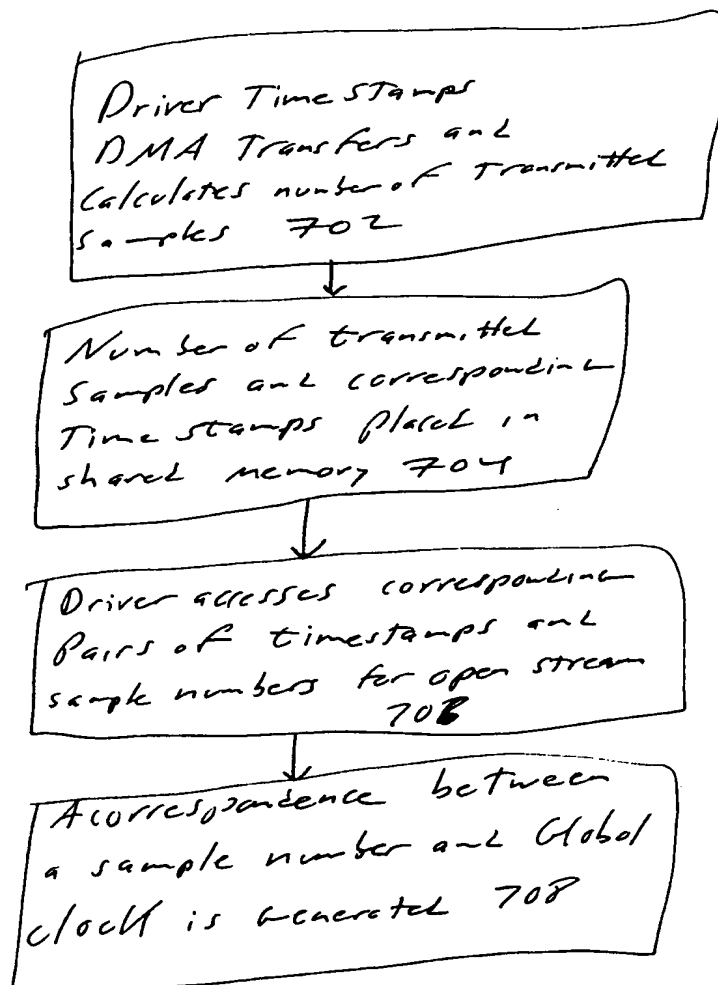 Driver Time Stamps
DMA Transfers and
Calculates number of Transmitted
samples 702
Number of transmitted
samples and corresponding
Time stamps placed in
shared memory 704
Driver accesses corresponding
Pairs of timestamps and
sample numbers for open stream
706
A correspondence between
a sample number and Global
clock is Generated 708